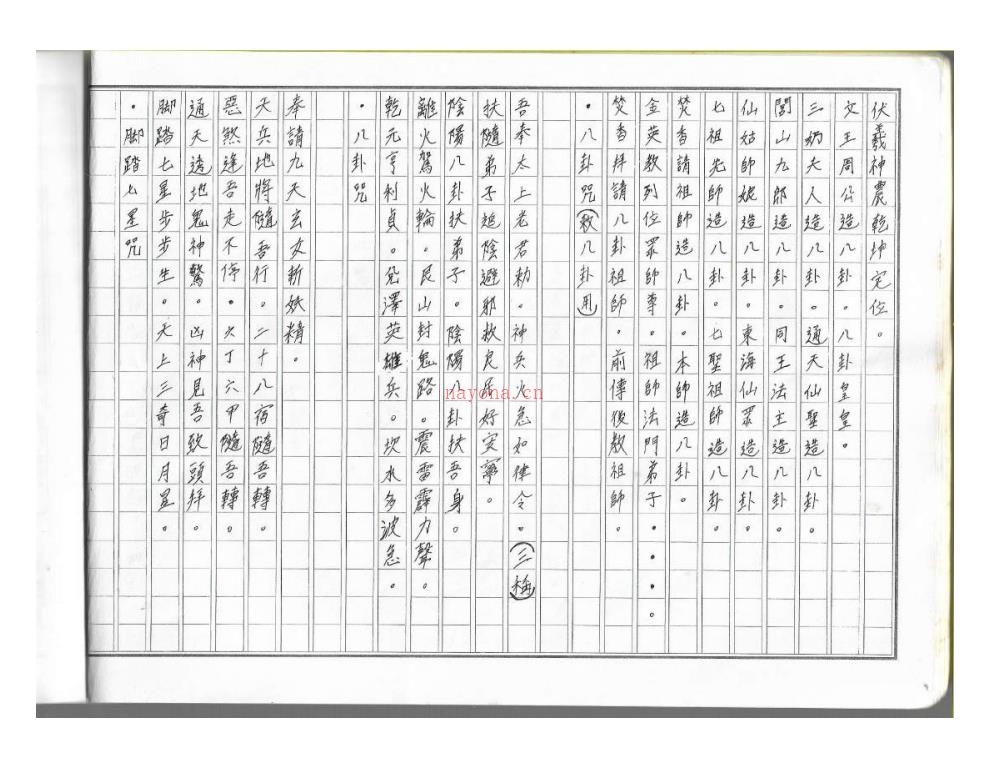 伏羲神農乾坤定位。
文王周公造八卦。八卦皇皇。
三奶夫人造八卦。通天仙聖造八卦。
閭山九郎造八卦。同王法主造八卦。
仙姑師娘造八卦。東海仙眾造八卦。
七祖先師造八卦。七聖祖師造八卦。
焚香請祖師造八卦。本師造八卦。
金英教列位眾師尊。祖師法門弟子・・・。
焚香拜請八卦祖師。前傳後教祖師。
・八卦咒(敕八卦用)
吾奉太上老君勅。神兵火急如律令。(三稱)
扶隨弟子追陰避邪救良民好安寧。
陰陽八卦扶弟子。陰陽八卦扶吾身。
離火駕火輪。艮山封鬼路。震雷霹力聲。
乾元亨利貞。兌澤英雄兵。坎水多波急。
・八卦咒
奉請九天玄女斬妖精。
天兵地將隨吾行。二十八宿隨吾轉。
惡煞逢吾走不停。火丁六甲隨吾轉。
通天透地鬼神驚。凶神見吾致頭拜。
脚踏七星步步生。天上三奇日月星。
・脚踏七星咒
nayona.cn